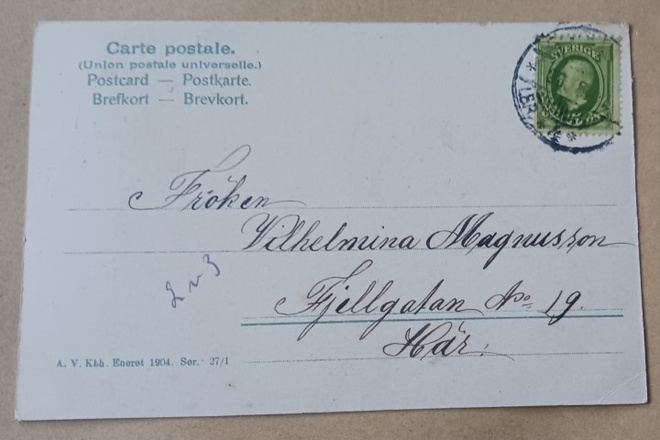 Carte postale.
(Union postale universelle.)
Postcard — Postkarte.
Brefkort — Brevkort.
SVERIGE
Fröken
Vilhelmina Magnusson
Fjellgatan No 19.
Här.
A. V. Kbh. Eneret 1904. Ser. 27/1